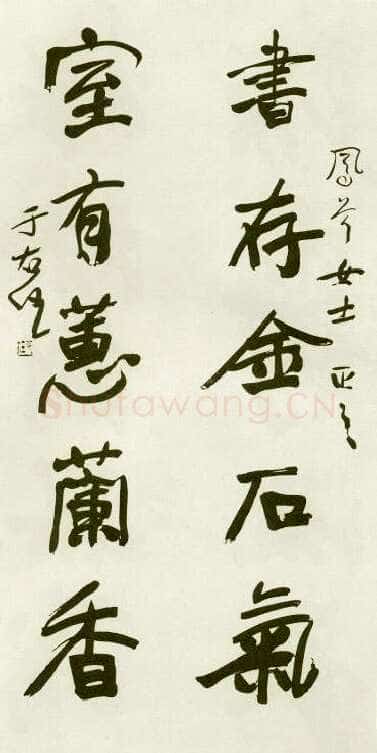 鳳芥女士 正之
書存金石氣
室有蕙蘭香
于右任
Shufawang.CN